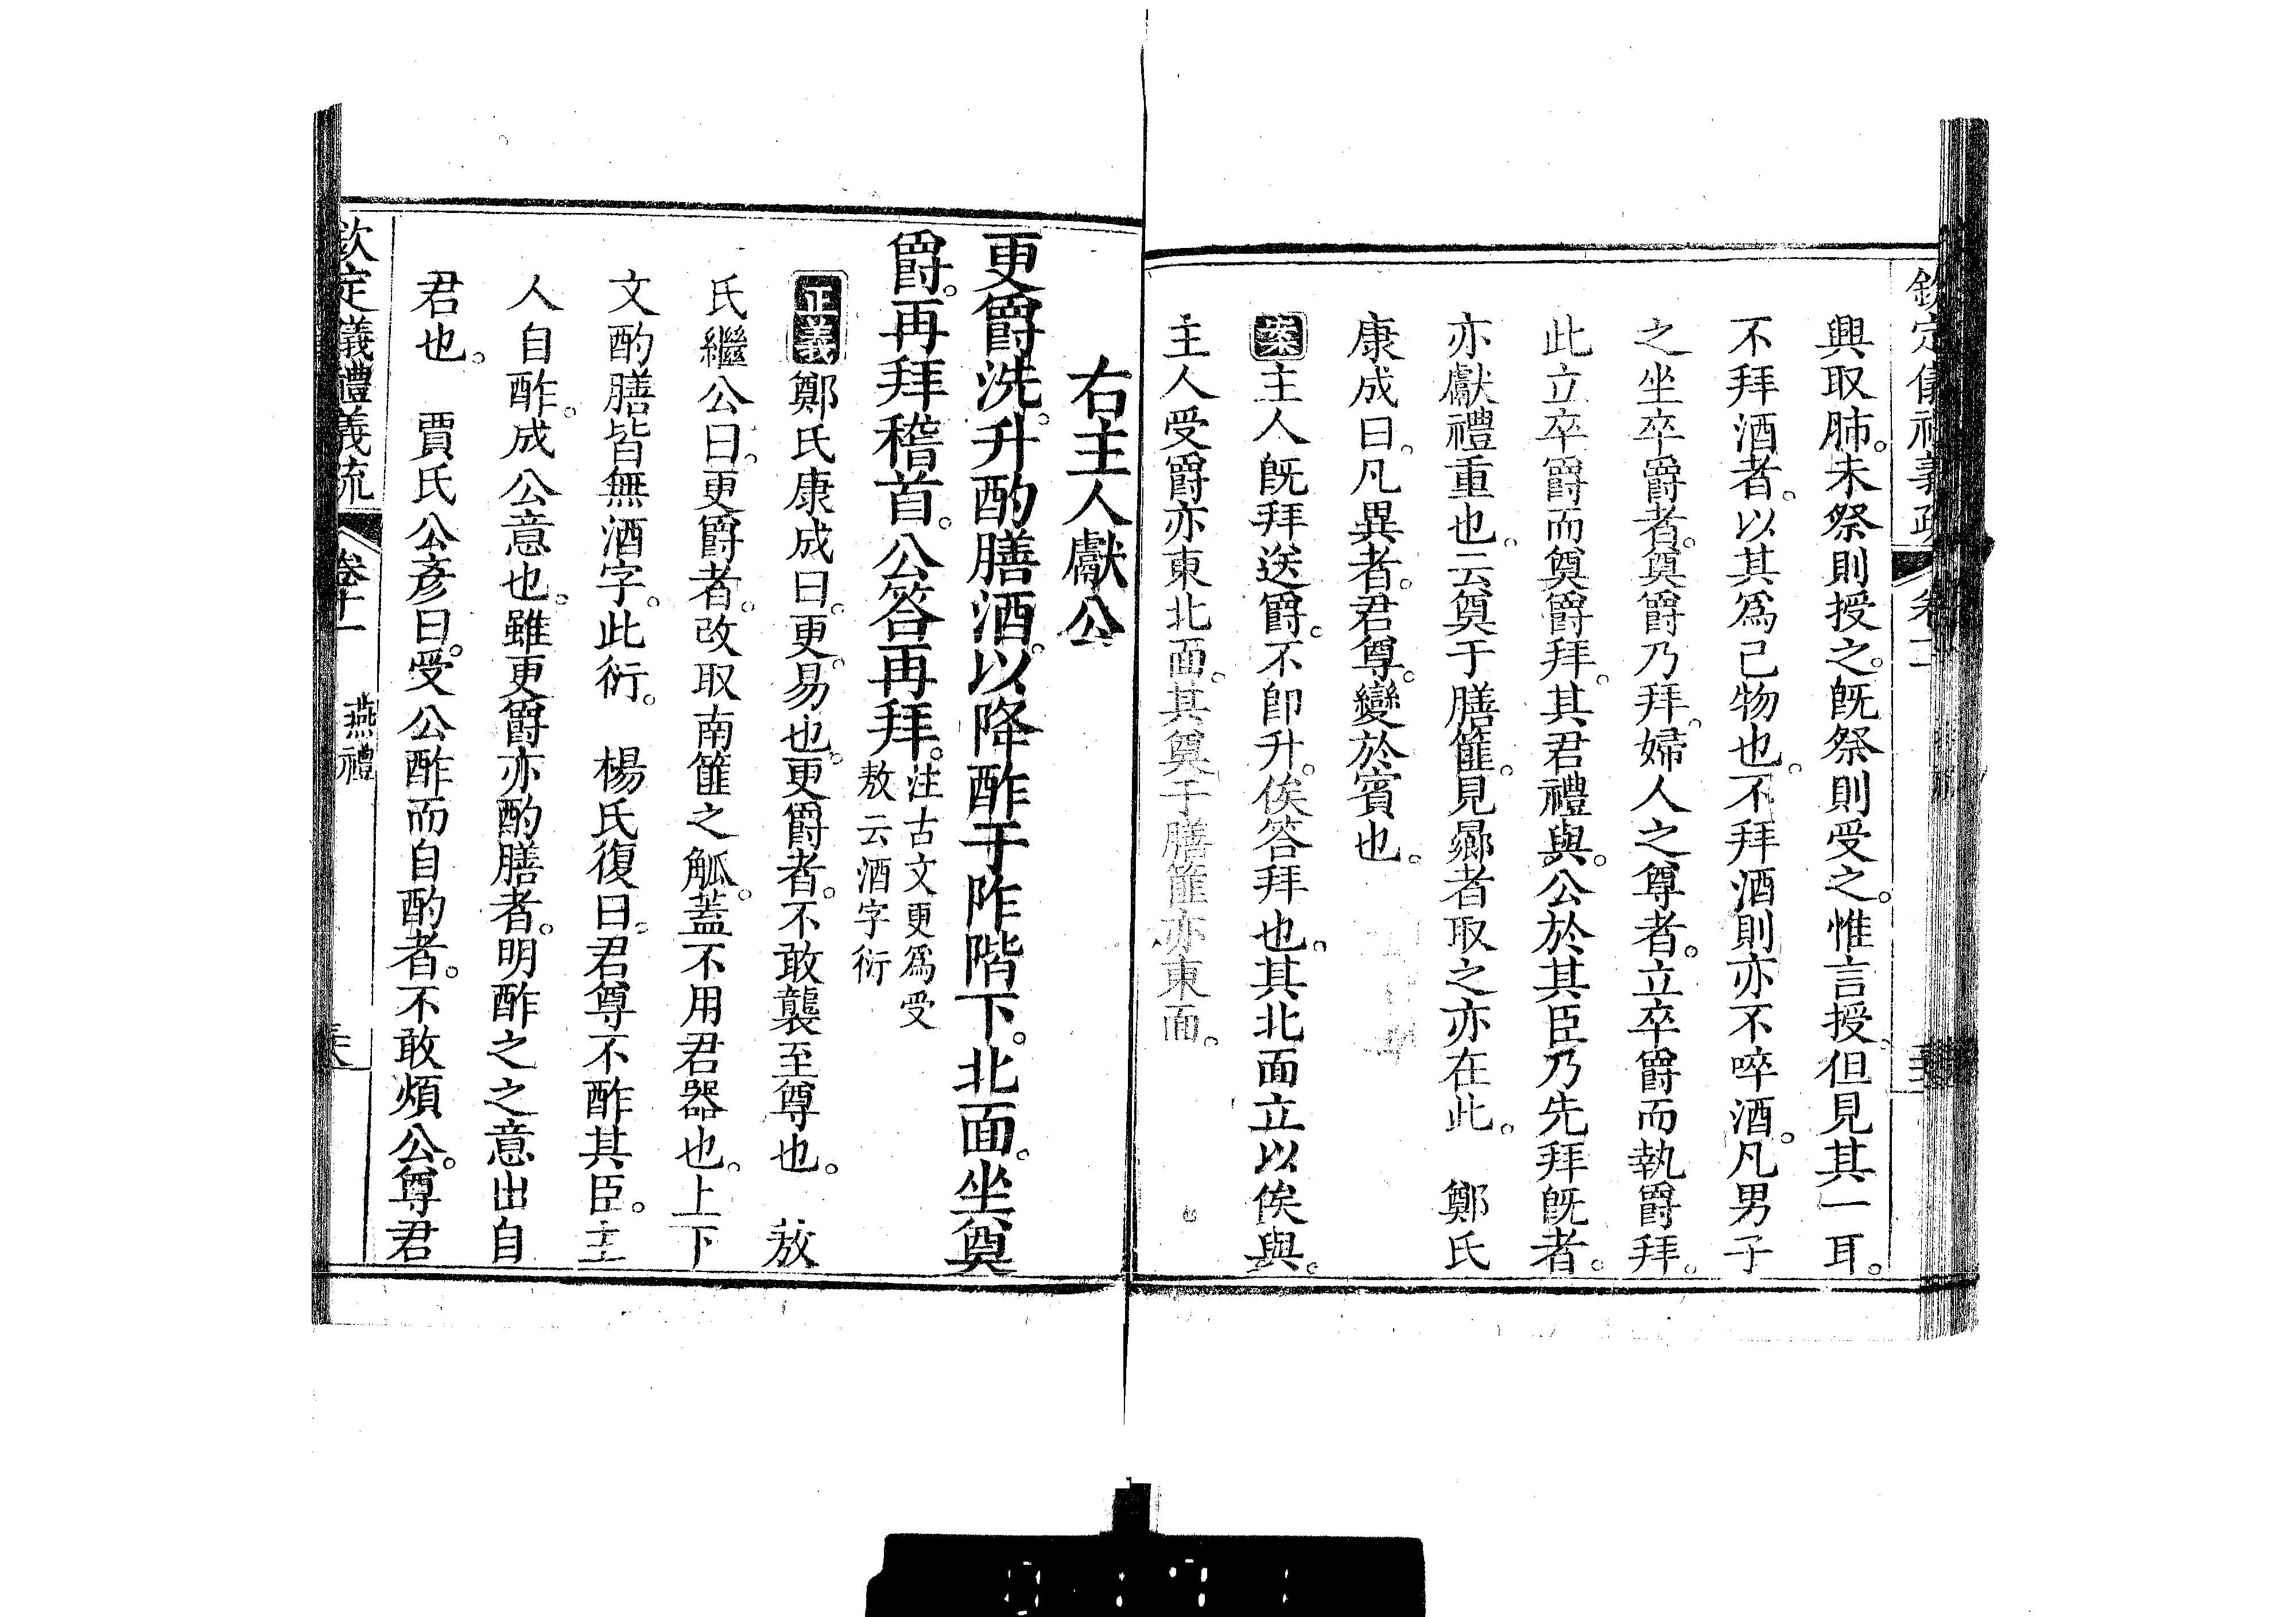 欽定儀禮義疏 卷十一
興取肺。未祭則授之。旣祭則受之。惟言授。但見其一耳。
不拜酒者。以其爲己物也。不拜酒則亦不啐酒。凡男子
之坐卒爵者。奠爵乃拜。婦人之尊者。立卒爵而執爵拜。
此立卒爵而奠爵拜。其君禮與。公於其臣乃先拜旣者。
亦獻禮重也。云奠于膳篚。見曏者取之亦在此。 鄭氏
康成曰。凡異者。君尊。變於賓也。
案主人旣拜送爵。不卽升。俟答拜也。其北面立以俟與。
主人受爵亦東北面。其奠于膳篚亦東面。
右主人獻公
更爵洗。升酌膳酒。以降酢于阼階下。北面。坐奠
爵。再拜稽首。公答再拜。
注古文更爲受
敖云酒字衍
正義鄭氏康成曰。更。易也。更爵者。不敢襲至尊也。 敖
氏繼公曰。更爵者。改取南篚之觚。蓋不用君器也。上下
文酌膳皆無酒字。此衍。 楊氏復曰。君尊不酢其臣。主
人自酢。成公意也。雖更爵亦酌膳者。明酢之之意出自
君也。 賈氏公彥曰。受公酢而自酌者。不敢煩公。尊君
欽定儀禮義疏 卷十一 燕禮